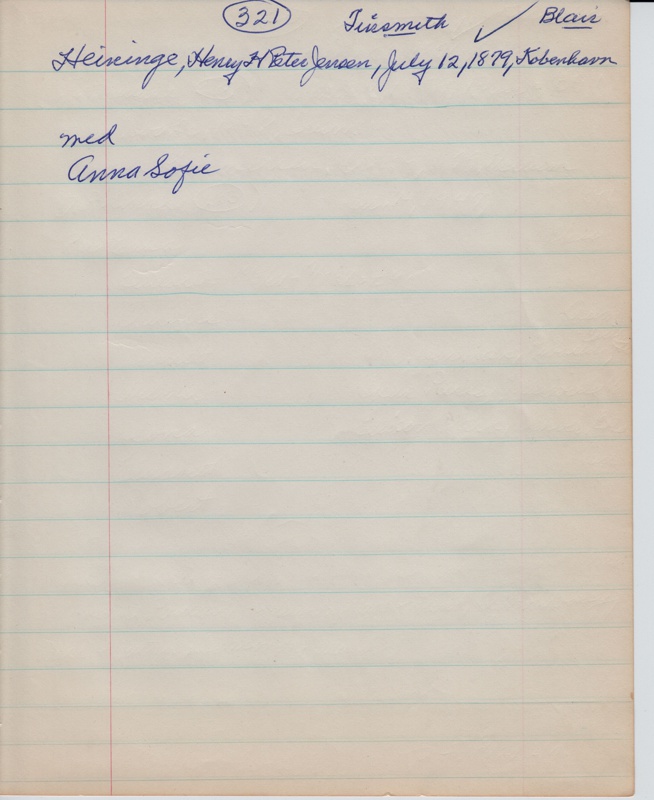 321 Tinsmith ✓ Blair
Heininge, Henry H Peter Jensen, July 12, 1879, Kobenhavn
med
Anna Sofie